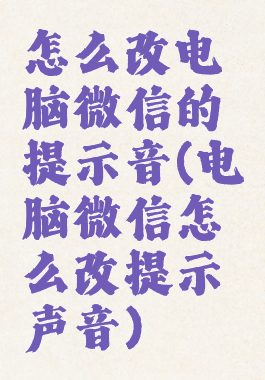 怎么改电
脑微信的
提示音(电
脑微信怎
么改提示
声音)